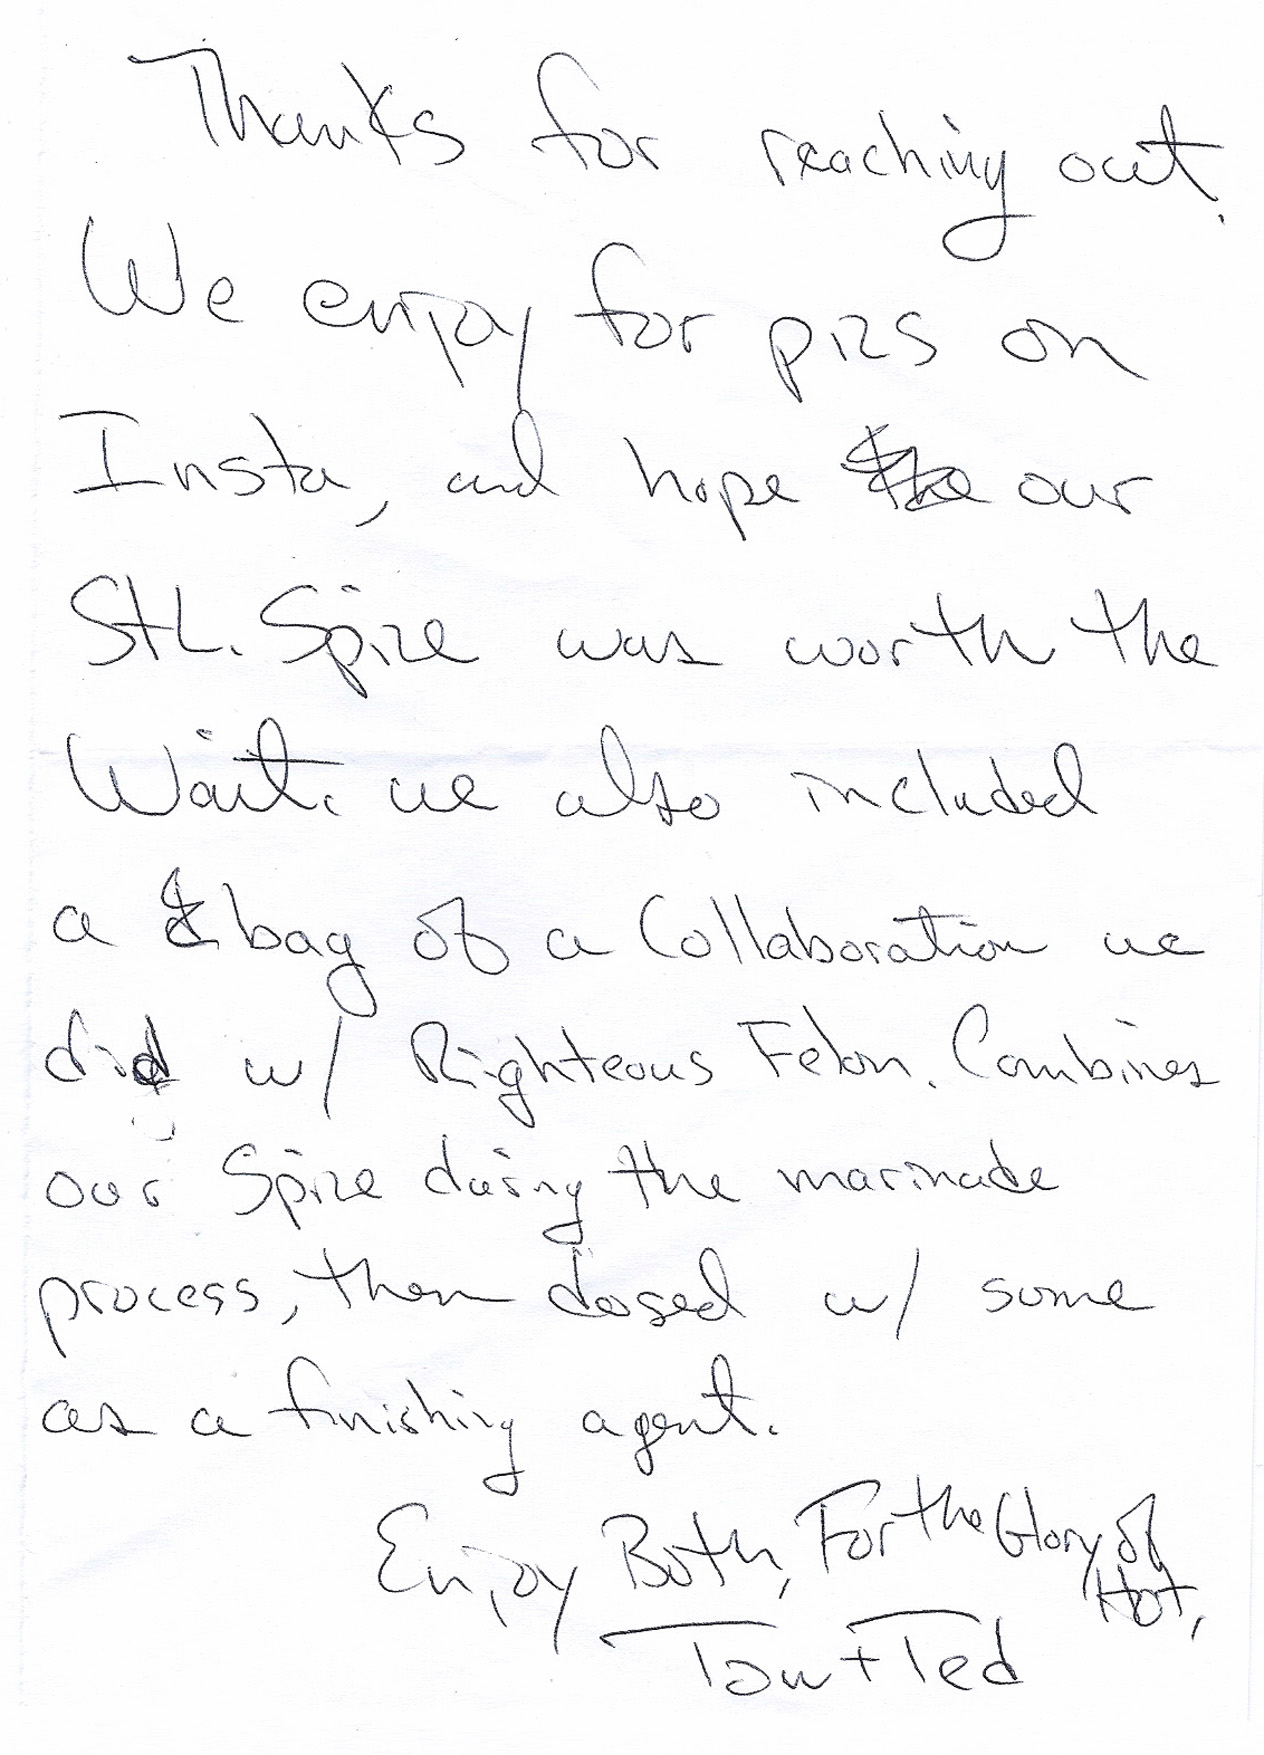 Thanks for reaching out.
We enjoy for pics on
Insta, and hope our
StL. Spice was worth the
Wait. we also included
a bag of a Collaboration we
did w/ Righteous Felon. Combines
our Spice during the marinade
process, then dosed w/ some
as a finishing agent.
Enjoy Both, For the Glory of
Hot,
Tom + Ted